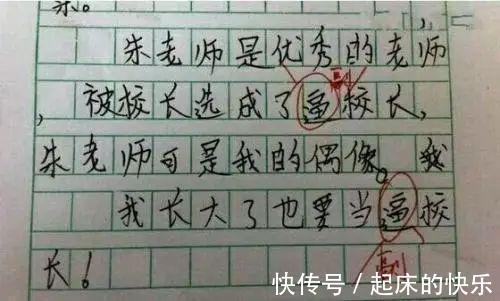 朱老师是优秀的老师
副
，被校长选成了逼校长，
朱老师可是我的偶像。我
我长大了也要当逼校
长！
副
快传号／起床的快乐